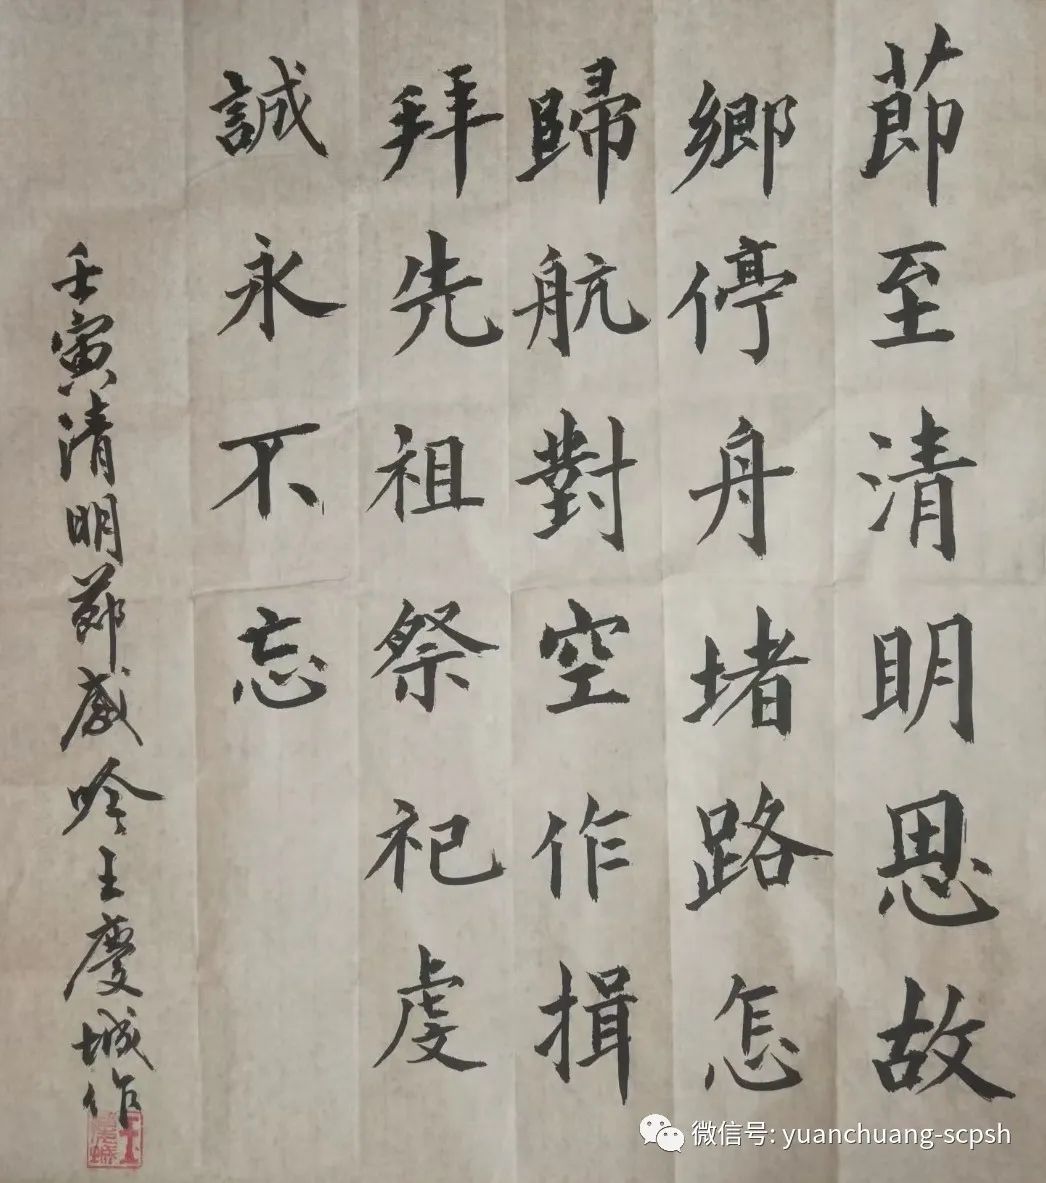 節至清明思故
鄉停舟堵路怎
歸航對空作揖
拜先祖祭祀虔
誠永不忘
壬寅清明節感吟王慶城作
王慶城
微信号: yuanchuang-scpsh